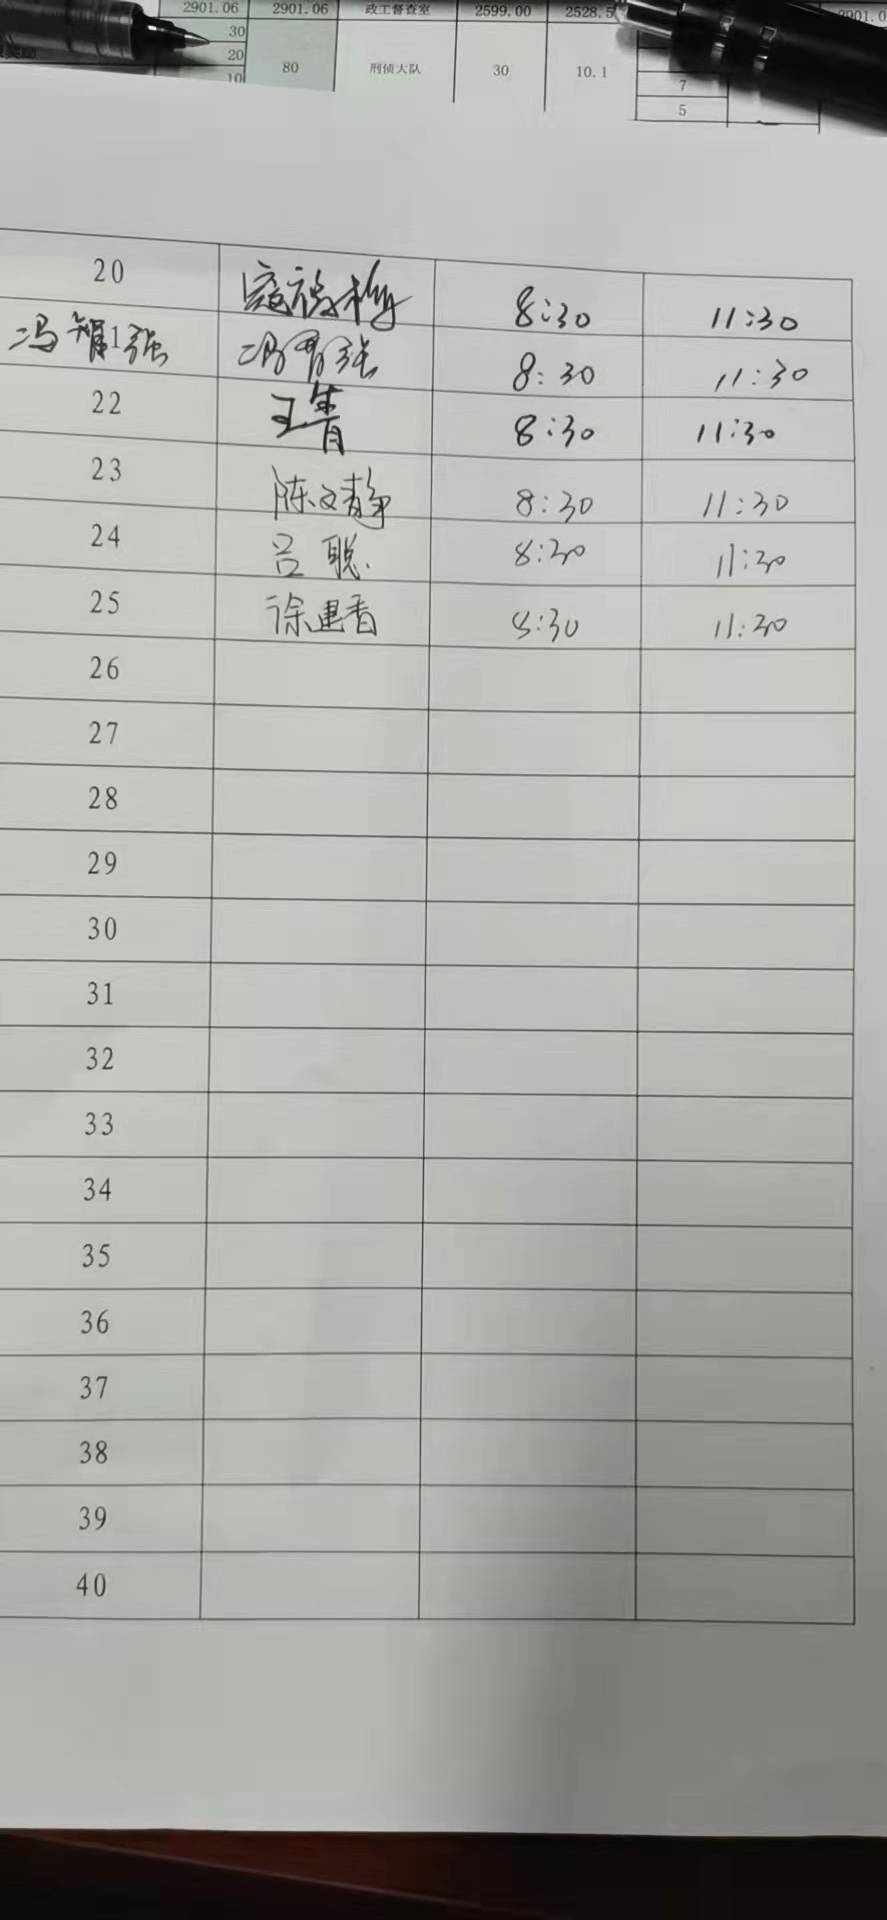 2901.06 2901.06 政工督查室 2599.00 2528.5
30
20
10 80 刑侦大队 30 10.1 7
5
20 8:30 11:30
冯 1强 冯 强 8:30 11:30
22 王青 8:30 11:30
23 陈文静 8:30 11:30
24 吕聪 8:30 11:30
25 徐建香 8:30 11:30
26
27
28
29
30
31
32
33
34
35
36
37
38
39
40